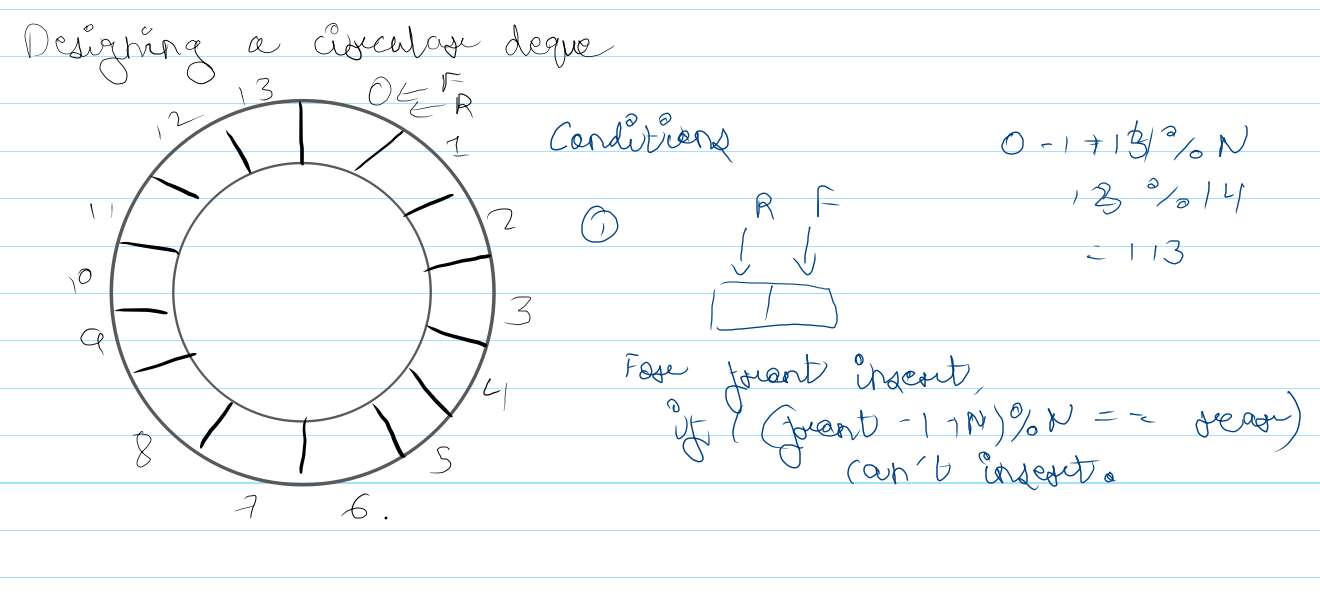 Designing a circular deque
13
0 ← F
← R
12
1
11
2
10
3
9
4
8
5
7
6.
Conditions
①
R F
For front insert,
if ((front - 1 + N) % N == rear)
can't insert.
% N
13 % 14
= 13